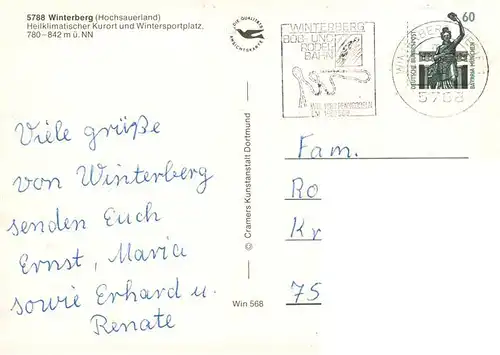 5788 Winterberg (Hochsauerland)
Heilklimatischer Kurort und Wintersportplatz.
780–842 m ü. NN
DIE QUALITÄTS
ANSICHTSKARTE
WINTERBERG
BOB UND
RODEL
BAHN
60
DEUTSCHE BUNDESPOST
BAVARIA MÜNCHEN
5788
Viele grüße
von Winterberg
senden Euch
Ernst, Maria
sowie Erhard u.
Renate
© Cramers Kunstanstalt Dortmund
Win 568
Fam.
Ro
Kr
75